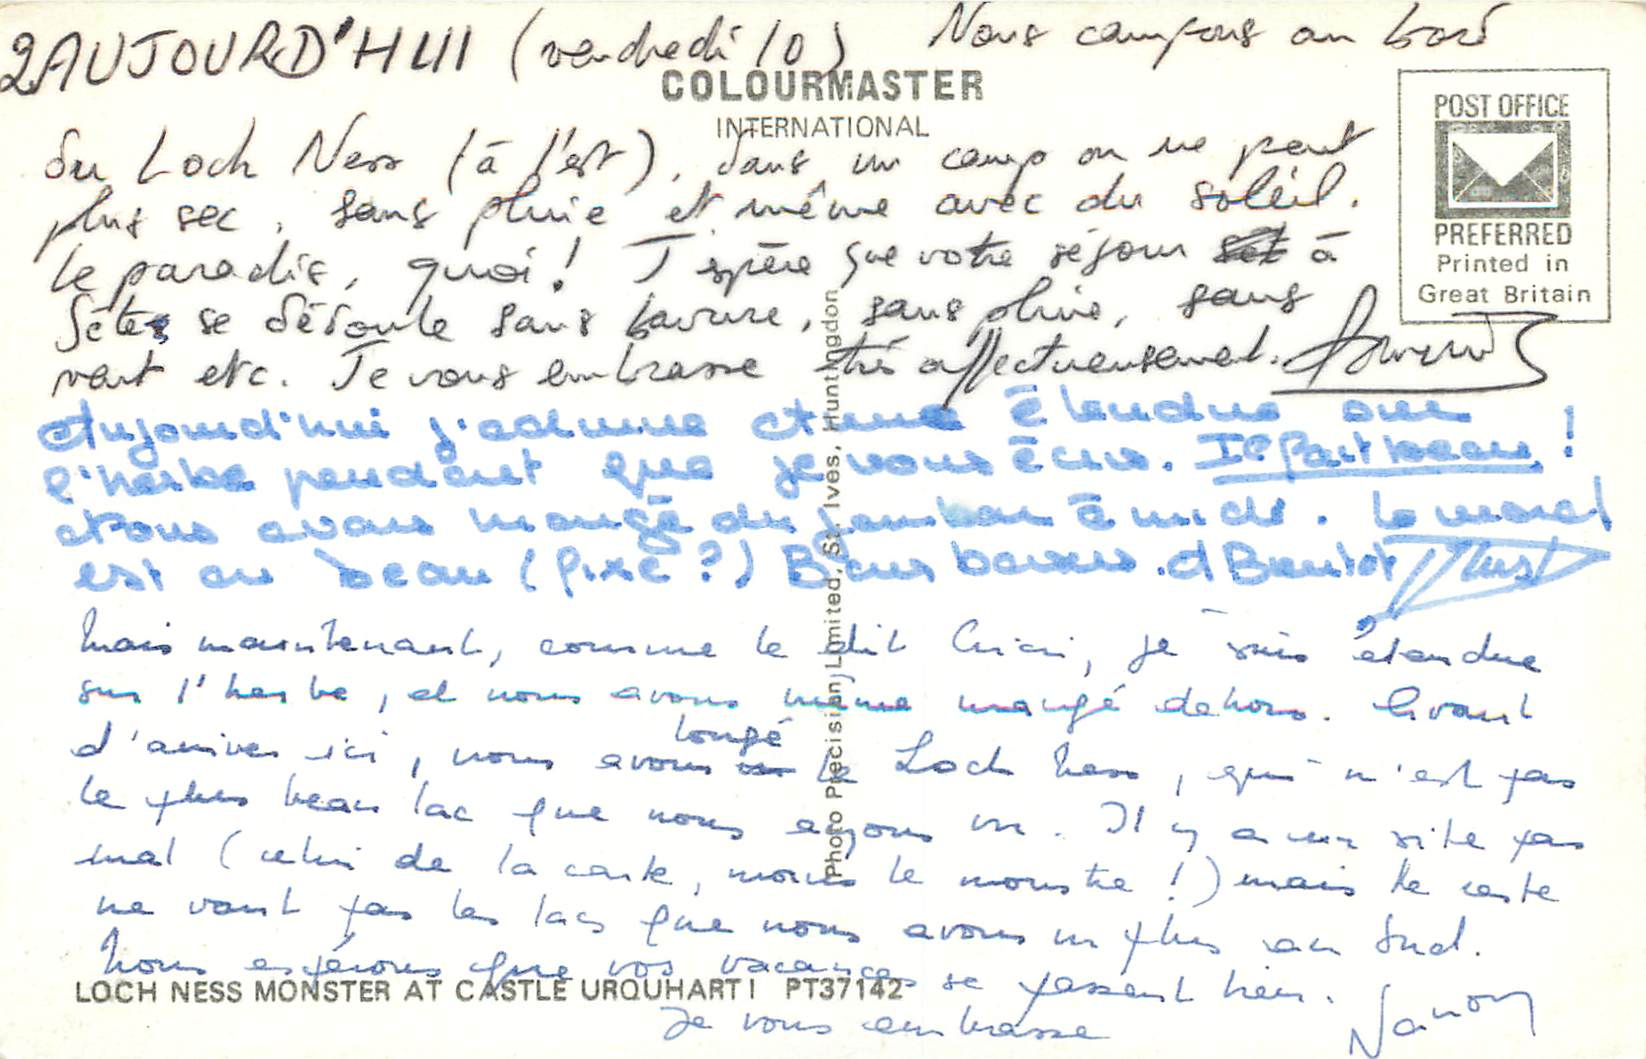 2 AUJOURD'HUI (vendredi 10) Nous campons au bord
COLOURMASTER
INTERNATIONAL
POST OFFICE
PREFERRED
Printed in
Great Britain
du Loch Ness (à l'est), dans un camp on ne peut
plus sec, sans pluie et même avec du soleil.
Le paradis, quoi! J'espère que votre séjour à
Sète se déroule sans bavure, sans pluie, sans
vent etc. Je vous embrasse très affectueusement.
Aujourd'hui j'admire étendue sur
l'herbe pendant que je vous écris. Il fait beau!
Nous avons mangé du jambon à midi. Le moral
est au beau (fixe?) Bons baisers. à Bientôt
Mais maintenant, comme le dit Cricri, je suis étendue
sur l'herbe, et nous avons même mangé dehors. Avant
d'arriver ici, nous avons longé le Loch Ness, qui n'est pas
le plus beau lac que nous ayons vu. Il y a un site pas
mal (celui de la carte, moins le monstre!) mais le reste
ne vaut pas les lacs que nous avons vu plus au Sud.
Nous espérons que vos vacances se passent bien.
Je vous embrasse Nanou
LOCH NESS MONSTER AT CASTLE URQUHART! PT37142
Photo Precision Limited, St. Ives, Huntingdon